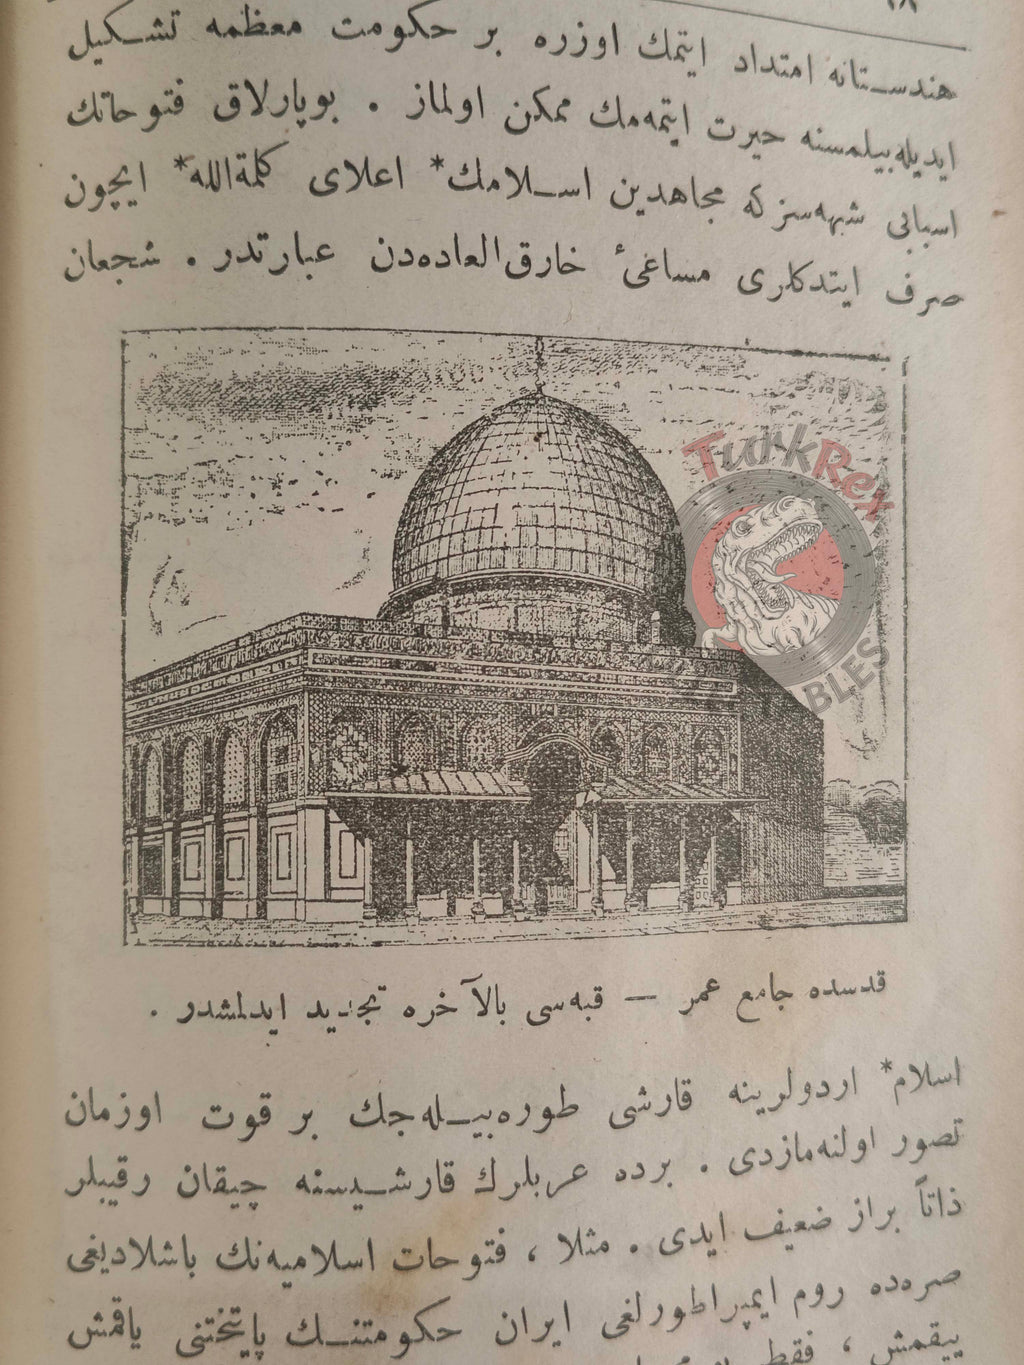 ١٨
هندستانه امتداد ايتمك اوزره بر حكومت معظمه تشكيل
ايديله‌بيلمسنه حيرت ايتمه‌مك ممكن اولماز . بوپارلاق فتوحاتك
اسبابى شبهه‌سزكه مجاهدين اسلامك* اعلاى كلمةالله* ايچون
صرف ايتدكلرى مساعئ خارق‌العاده‌دن عبارتدر . شجعان
TurkRex
قدسده جامع عمر — قبه‌سى بالآخره تجديد ايدلمشدر .
اسلام* اردولرينه قارشى طوره‌بيله‌جك بر قوت اوزمان
تصور اولنه‌مازدى . برده عربلرك قارشيسنه چيقان رقيبلر
ذاتاً براز ضعيف ايدى . مثلا ، فتوحات اسلاميه‌نك باشلاديغى
صره‌ده روم ايمپراطورلغى ايران حكومتنك پايتختنى ياقمش
ييقمش ، فقط